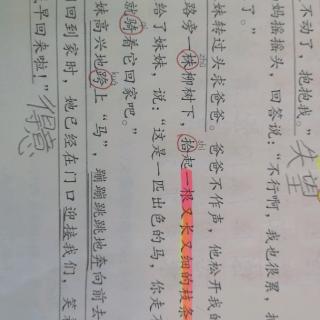 不动了，抱抱我。”
失望
妈摇摇头，回答说：“不行啊，我也很累，抱
了。”
妹转过头求爸爸。爸爸不作声，他松开我的
路旁一株柳树下，拾起一根又长又细的枝条
给了妹妹，说：“这是一匹出色的马，你走
就骑着它回家吧。”
妹高兴地跨上“马”，蹦蹦跳跳地奔向前去
回到家时，她已经在门口迎接我们，笑
早回来啦！”
得意